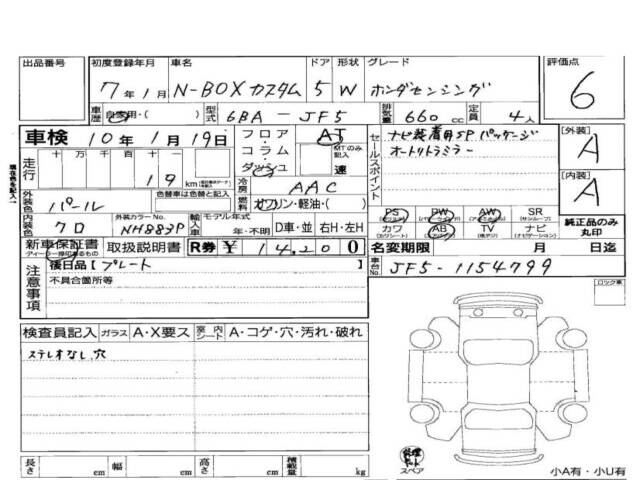 出品番号 初度登録年月 車名 ドア 形状 グレード 評価点
7年1月 N-BOXカスタム 5 W ホンダセンシング 6
車歴 自家用・( ) 型式 6BA-JF5 排気量 660cc 定員 4人
車検 10年1月19日 フロア・コラム・ダッシュ AT MTのみ記入 速
セールスポイント ナビ装着用SPパッケージ
オートリトラミラー
[外装] A
[内装] A
走行 十万 万 千 百 十 一 19 km
冷房 AAC
外装色 パール 色替車は色替と記入 燃料 ガソリン・軽油・( )
内装色 クロ 外装カラーNo. NH883P 輸入車 モデル年式 年・不明 D車・並 右H・左H
PS PW AW SR (サンルーフ)
カワ AB TV ナビ
純正品のみ丸印
新車保証書 取扱説明書 R券 ¥ 14,200
名変期限 月 日迄
車台No. JF5-1154799
注意事項 後日品【プレート 】
不具合箇所等
ロック車
検査員記入 ガラス A・X要ス 室内シート A・コゲ・穴・汚れ・破れ
ステレオなし穴
長さ cm 幅 cm 高さ cm 積載量 kg
修理キット
スペア
小A有・小U有
現在色を記入